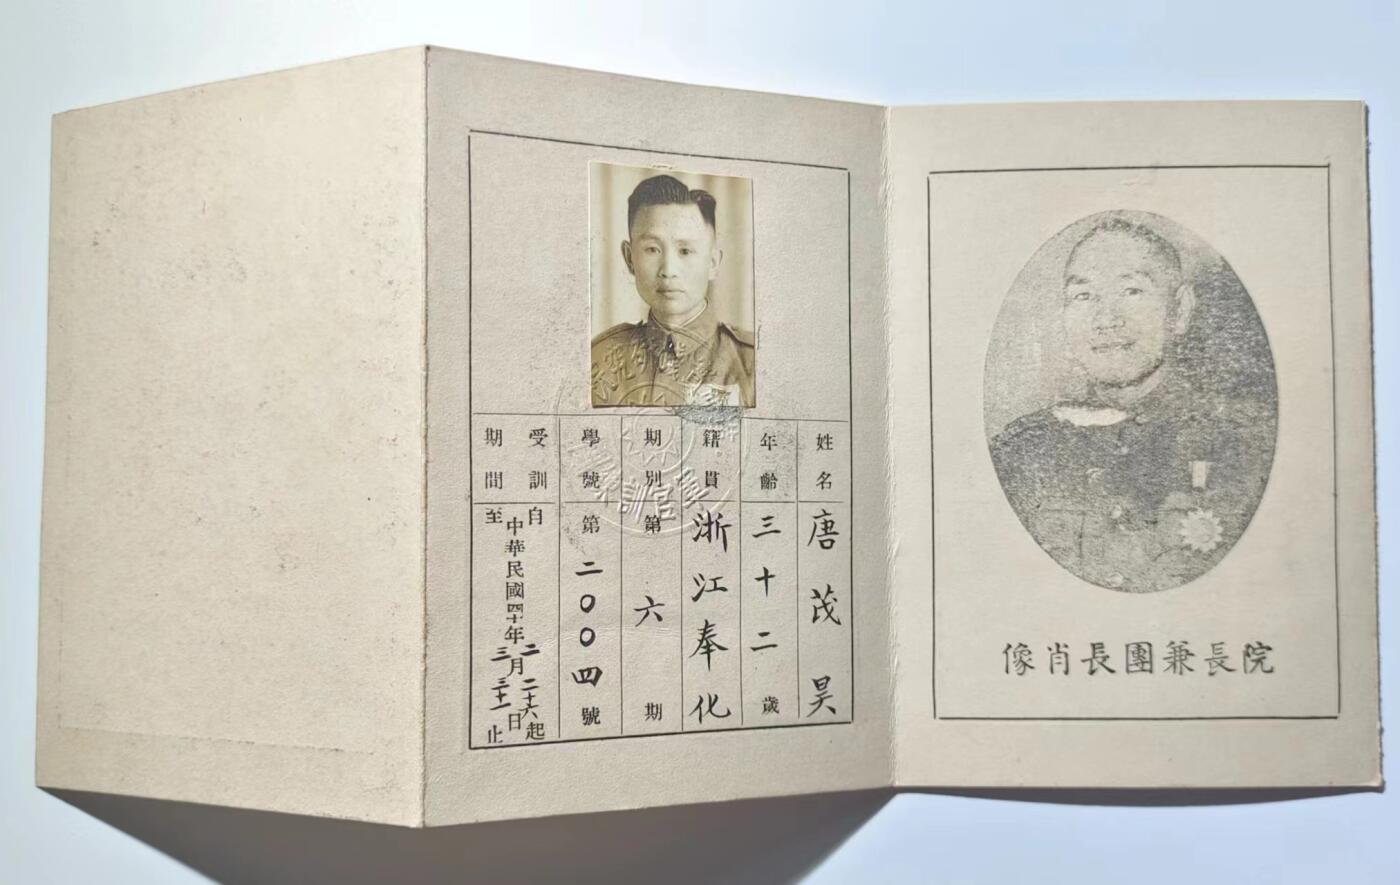 院長兼團長肖像
姓名 唐茂昊
年齡 三十二歲
籍貫 浙江奉化
期別 第六期
學號 第二〇〇四號
受訓期間
自 二 二十六 起
中華民國四十年 月 日
至 三 三十一 止